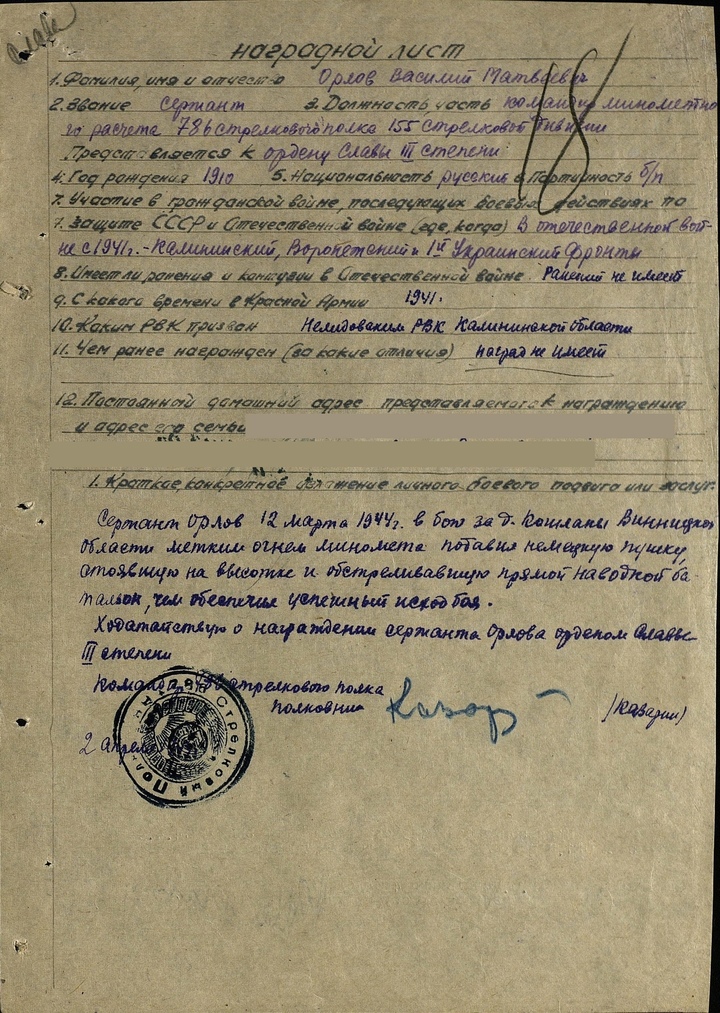 Слава
18
наградной лист
1. Фамилия, имя и отчество Орлов Василий Матвеевич
2. Звание Сержант 3. Должность часть командир минометно
го расчета 786 стрелкового полка 155 стрелковой дивизии
Представляется к ордену Славы III степени
4. Год рождения 1910 5. Национальность русский 6. Партийность б/п
7. Участие в гражданской войне, последующих боевых действиях по
7. Защите СССР и Отечественной войне (где, когда) В отечественной вой-
не с 1941г. - Калининский, Воронежский и 1й Украинский фронты
8. Имеет ли ранения и контузии в Отечественной войне Ранений не имеет
9. С какого времени в Красной Армии 1941.
10. Каким РВК призван Нелидовским РВК Калининской области
11. Чем ранее награжден (за какие отличия) наград не имеет
12. Постоянный домашний адрес представляемого к награждению
и адрес его семьи
1. Краткое, конкретное изложение личного боевого подвига или заслуг.
Сержант Орлов 12 марта 1944г. в бою за д. Кошланы Винницкой
области метким огнем миномета подавил немецкую пушку,
стоявшую на высотке и обстреливавшую прямой наводкой ба-
тальон, чем обеспечил успешный исход боя.
Ходатайствую о награждении сержанта Орлова орденом Славы
III степени
Командир 786 стрелкового полка
полковник Казар (Казарин)
2 апреля
Стрелковый Полк